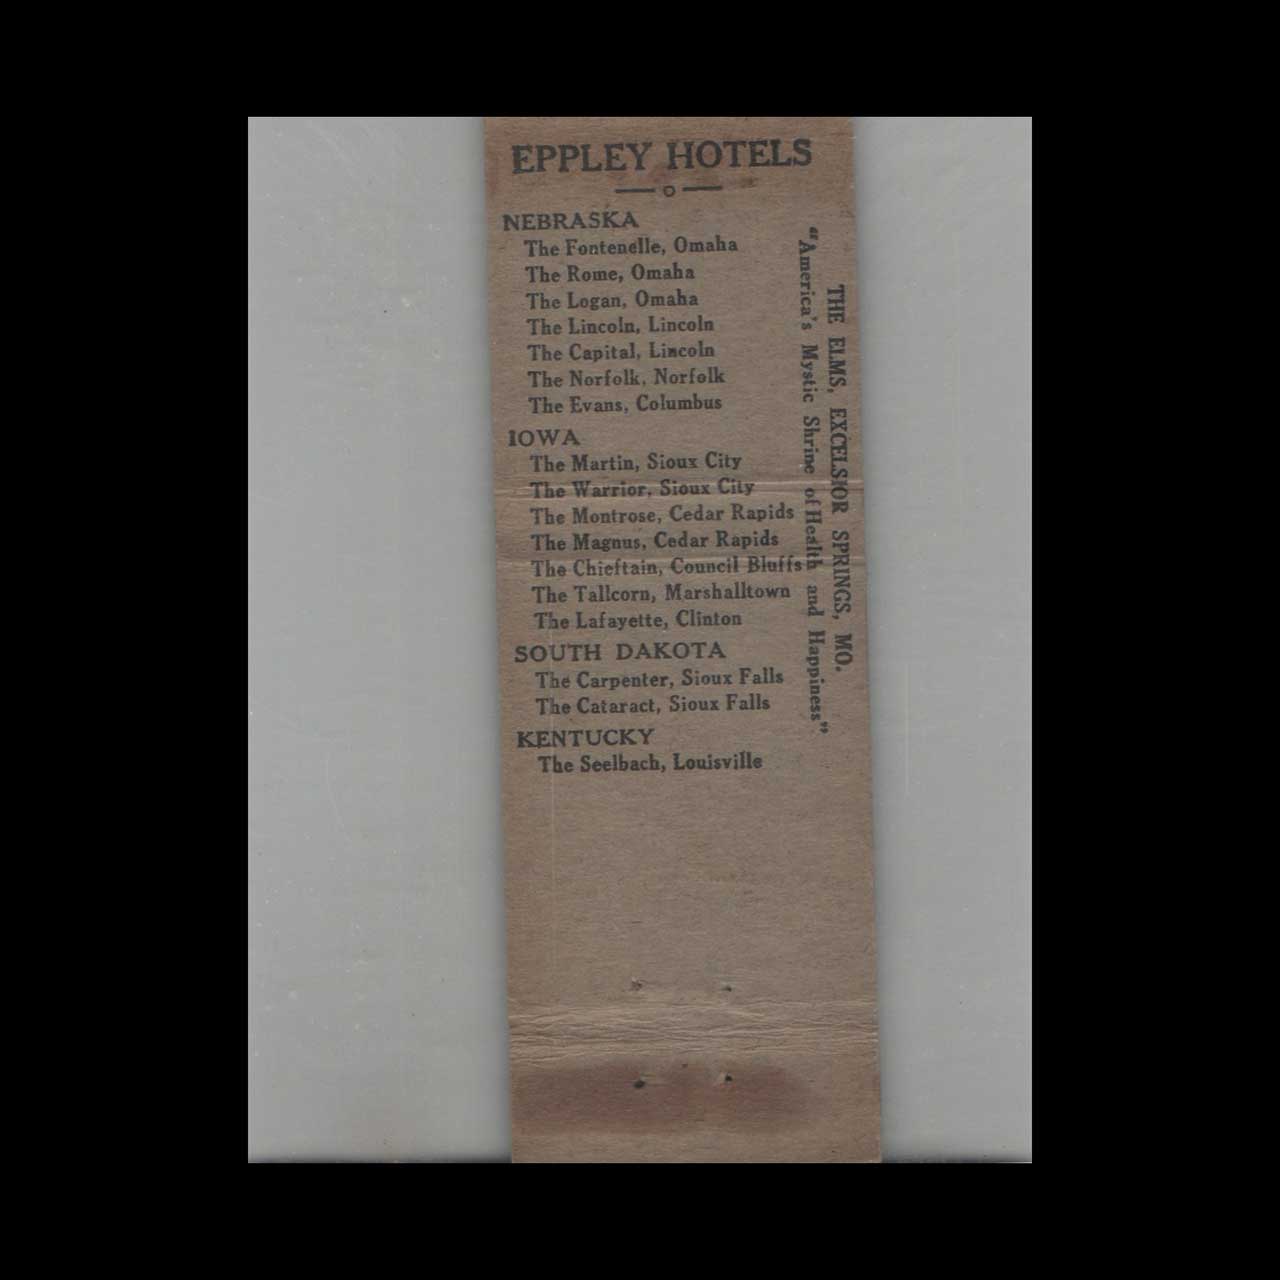 EPPLEY HOTELS
NEBRASKA
The Fontenelle, Omaha
The Rome, Omaha
The Logan, Omaha
The Lincoln, Lincoln
The Capital, Lincoln
The Norfolk, Norfolk
The Evans, Columbus
IOWA
The Martin, Sioux City
The Warrior, Sioux City
The Montrose, Cedar Rapids
The Magnus, Cedar Rapids
The Chieftain, Council Bluffs
The Tallcorn, Marshalltown
The Lafayette, Clinton
SOUTH DAKOTA
The Carpenter, Sioux Falls
The Cataract, Sioux Falls
KENTUCKY
The Seelbach, Louisville
THE ELMS, EXCELSIOR SPRINGS, MO.
“America's Mystic Shrine of Health and Happiness”